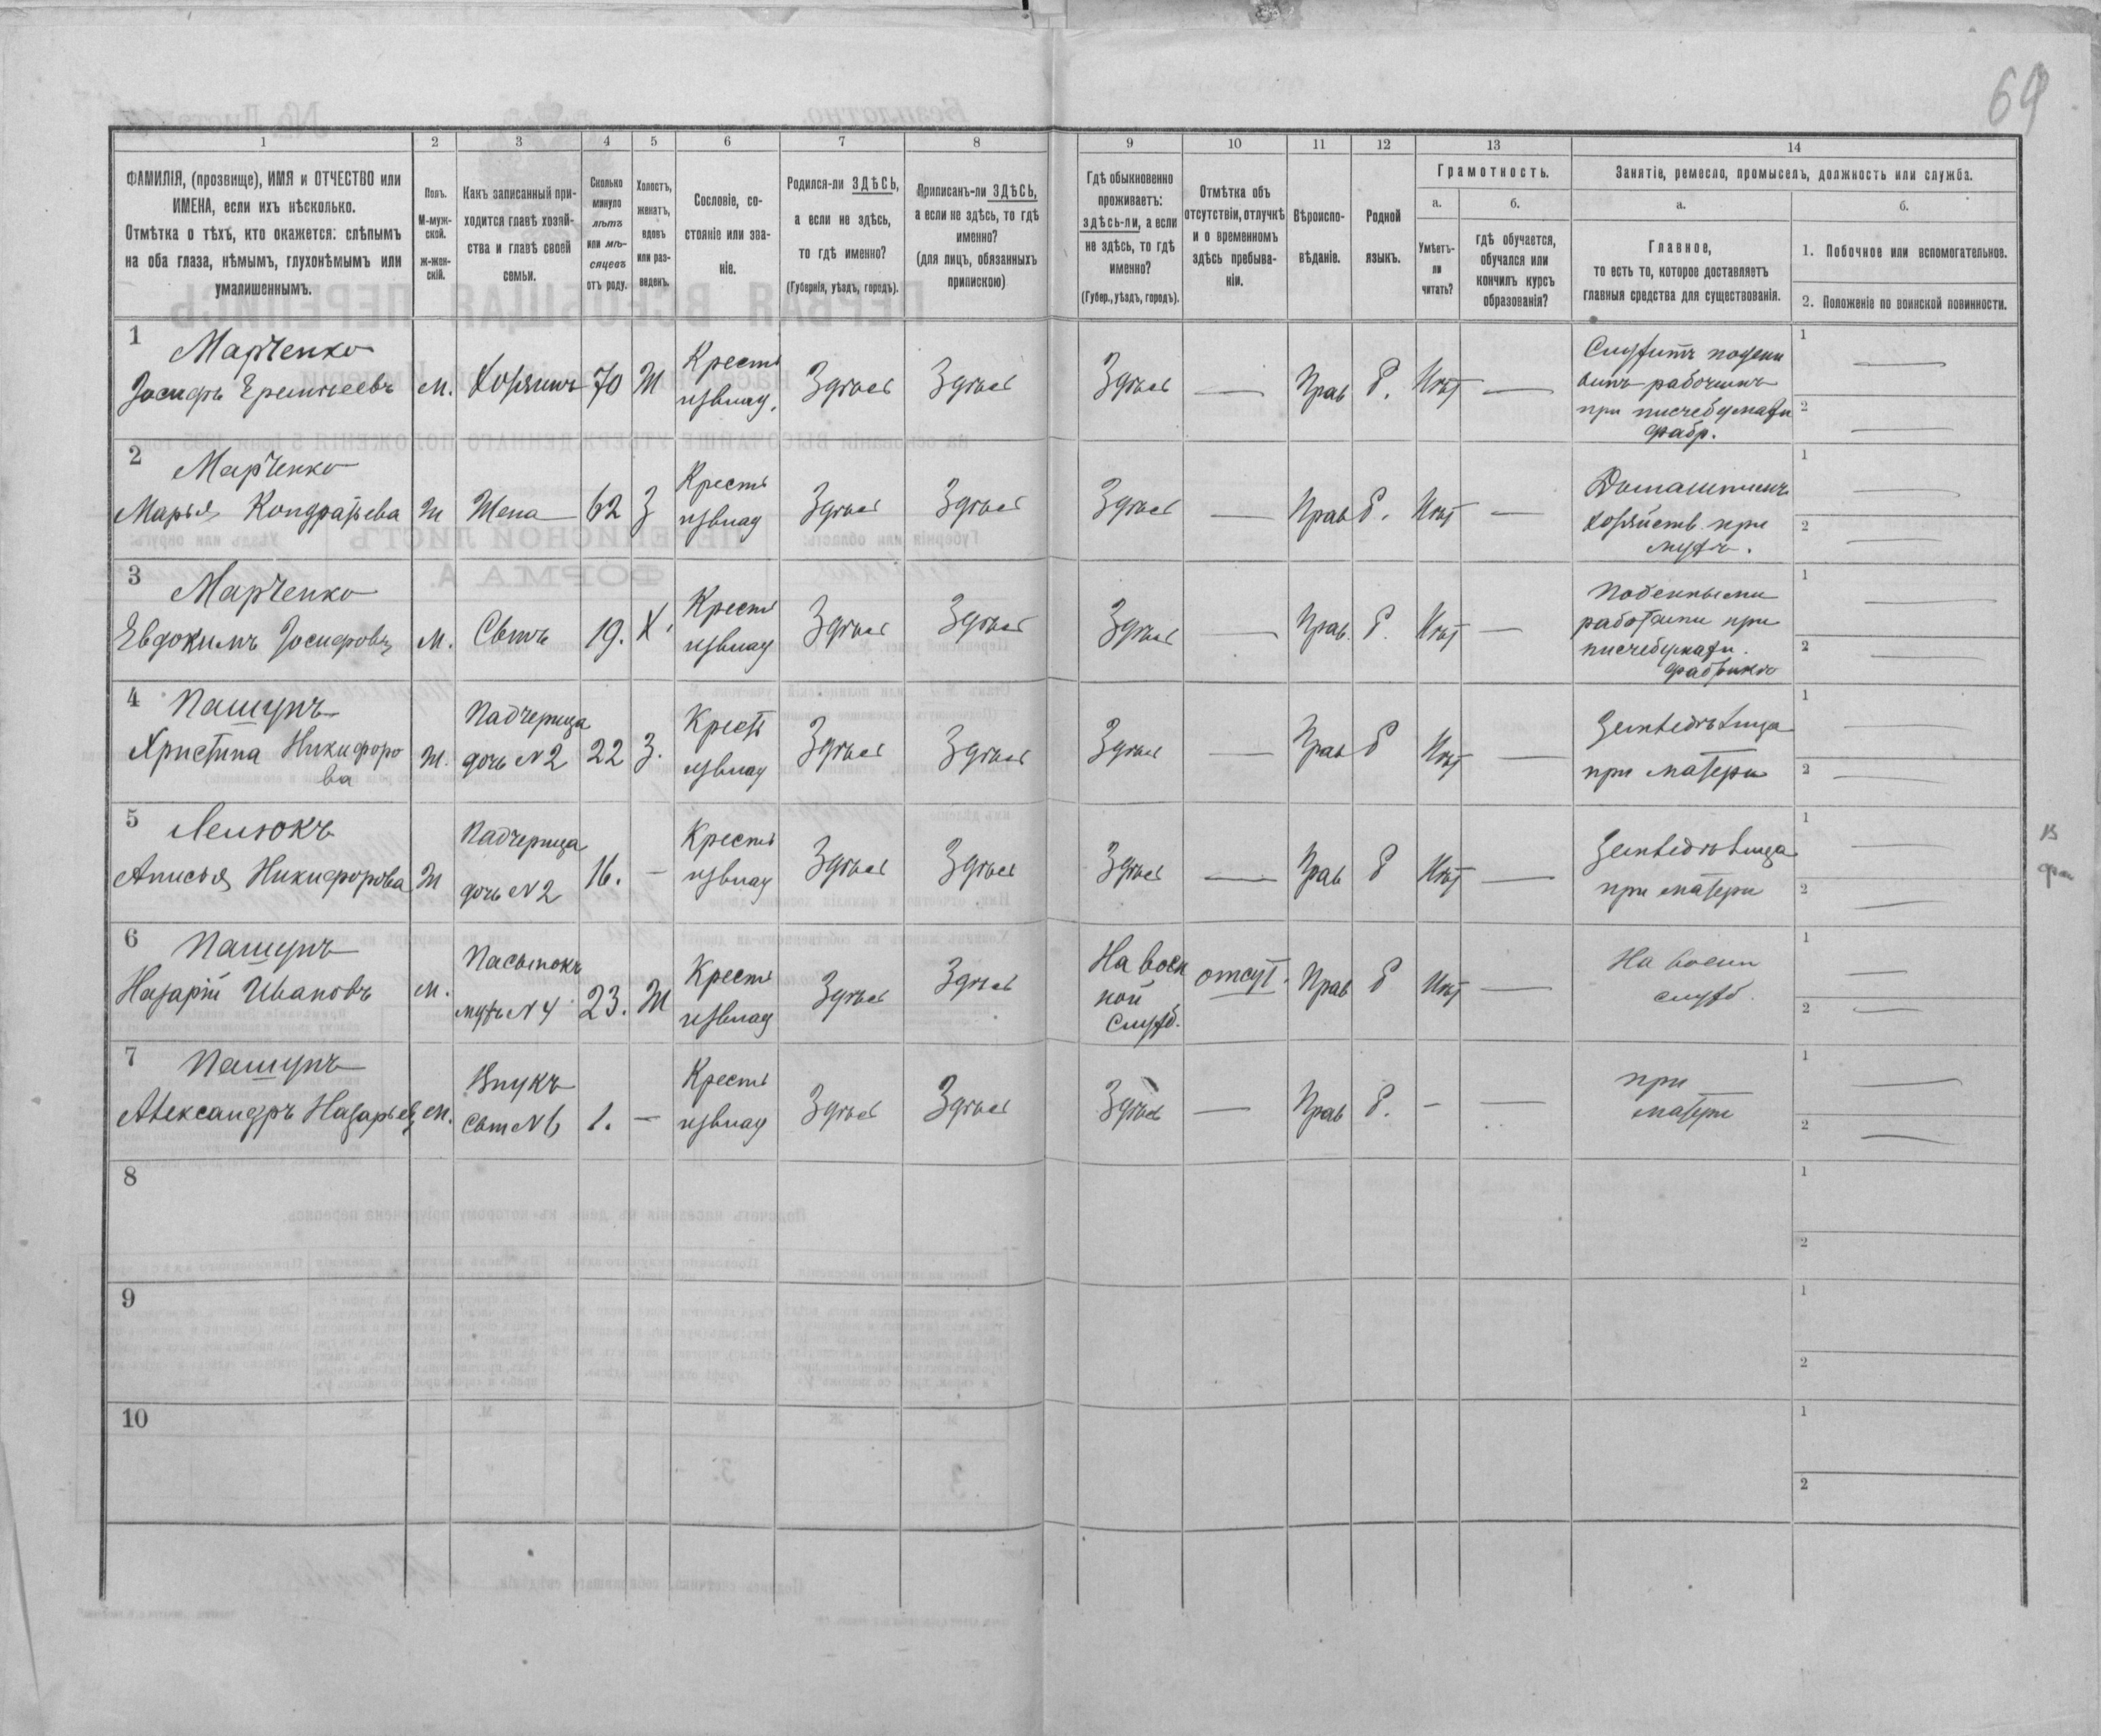 69
1
2
3
4
5
6
7
8
9
10
11
12
13
14
ФАМИЛІЯ, (прозвище), ИМЯ и ОТЧЕСТВО или
ИМЕНА, если ихъ нѣсколько.
Отмѣтка о тѣхъ, кто окажется: слѣпымъ
на оба глаза, нѣмымъ, глухонѣмымъ или
умалишеннымъ.
Полъ.
М-муж-
ской.
ж-жен-
скій.
Какъ записанный при-
ходится главѣ хозяй-
ства и главѣ своей
семьи.
Сколько
минуло
лѣтъ
или мѣ-
сяцевъ
отъ роду.
Холостъ,
женатъ,
вдовъ
или раз-
веденъ.
Сословіе, со-
стояніе или зва-
ніе.
Родился-ли ЗДѢСЬ,
а если не здѣсь,
то гдѣ именно?
(Губернія, уѣздъ, городъ).
Приписанъ-ли ЗДѢСЬ,
а если не здѣсь, то гдѣ
именно?
(для лицъ, обязанныхъ
припискою)
Гдѣ обыкновенно
проживаетъ:
здѣсь-ли, а если
не здѣсь, то гдѣ
именно?
(Губер., уѣздъ, городъ).
Отмѣтка объ
отсутствіи, отлучкѣ
и о временномъ
здѣсь пребыва-
ніи.
Вѣроиспо-
вѣданіе.
Родной
языкъ.
Грамотность.
а.
Умѣетъ-
ли
читать?
б.
гдѣ обучается,
обучался или
кончилъ курсъ
образованія?
Занятіе, ремесло, промыселъ, должность или служба.
а.
Главное,
то есть то, которое доставляетъ
главныя средства для существованія.
б.
1. Побочное или вспомогательное.
2. Положеніе по воинской повинности.
1 Марченко
Іосифъ Еремѣевъ м. Хозяинъ 70 Ж Крестъ
изъ влад. Здѣсь Здѣсь Здѣсь — Прав Б. Нѣт —
Служитъ поден
нымъ рабочимъ
при писчебумажн
фабр.
1 —
2 —
2 Марченко
Марья Кондратьева Ж Жена 62 З Крестъ
изъ влад Здѣсь Здѣсь Здѣсь — Прав Б. Нѣт —
Домашнимъ
хозяйств при
мужѣ.
1 —
2 —
3 Марченко
Евдокимъ Іосифовъ м. Сынъ 19. Х. Крестъ
изъ влад Здѣсь Здѣсь Здѣсь — Прав. Б. Нѣт —
Поденными
работами при
писчебумажн.
фабрикѣ
1 —
2 —
4 Пашунъ
Христина Никифоро
ва Ж. Падчерица
дочь N 2 22 З. Крест
изъ влад Здѣсь Здѣсь Здѣсь — Прав Б Нѣт —
Земледѣлица
при матери
1 —
2 —
5
Анисья Никифорова Ж Падчерица
дочь N 2 16. — Крестъ
изъ влад Здѣсь Здѣсь Здѣсь — Прав Б Нѣт —
Земледѣлица
при матери
1 —
2 —
6 Пашунъ
Назарій Ивановъ м. Пасынокъ
мужъ N 4 23. Ж Крестъ
изъ влад Здѣсь Здѣсь На воен
ной
служб. отсут. Прав Б Нѣт —
На воен
служб.
1 —
2 —
7 Пашунъ
Александръ Назарьев м. Внукъ
сын N 6 1. — Крестъ
изъ влад Здѣсь Здѣсь Здѣсь — Прав Б. — —
при
матери
1 —
2 —
8
1
2
9
1
2
10
1
2